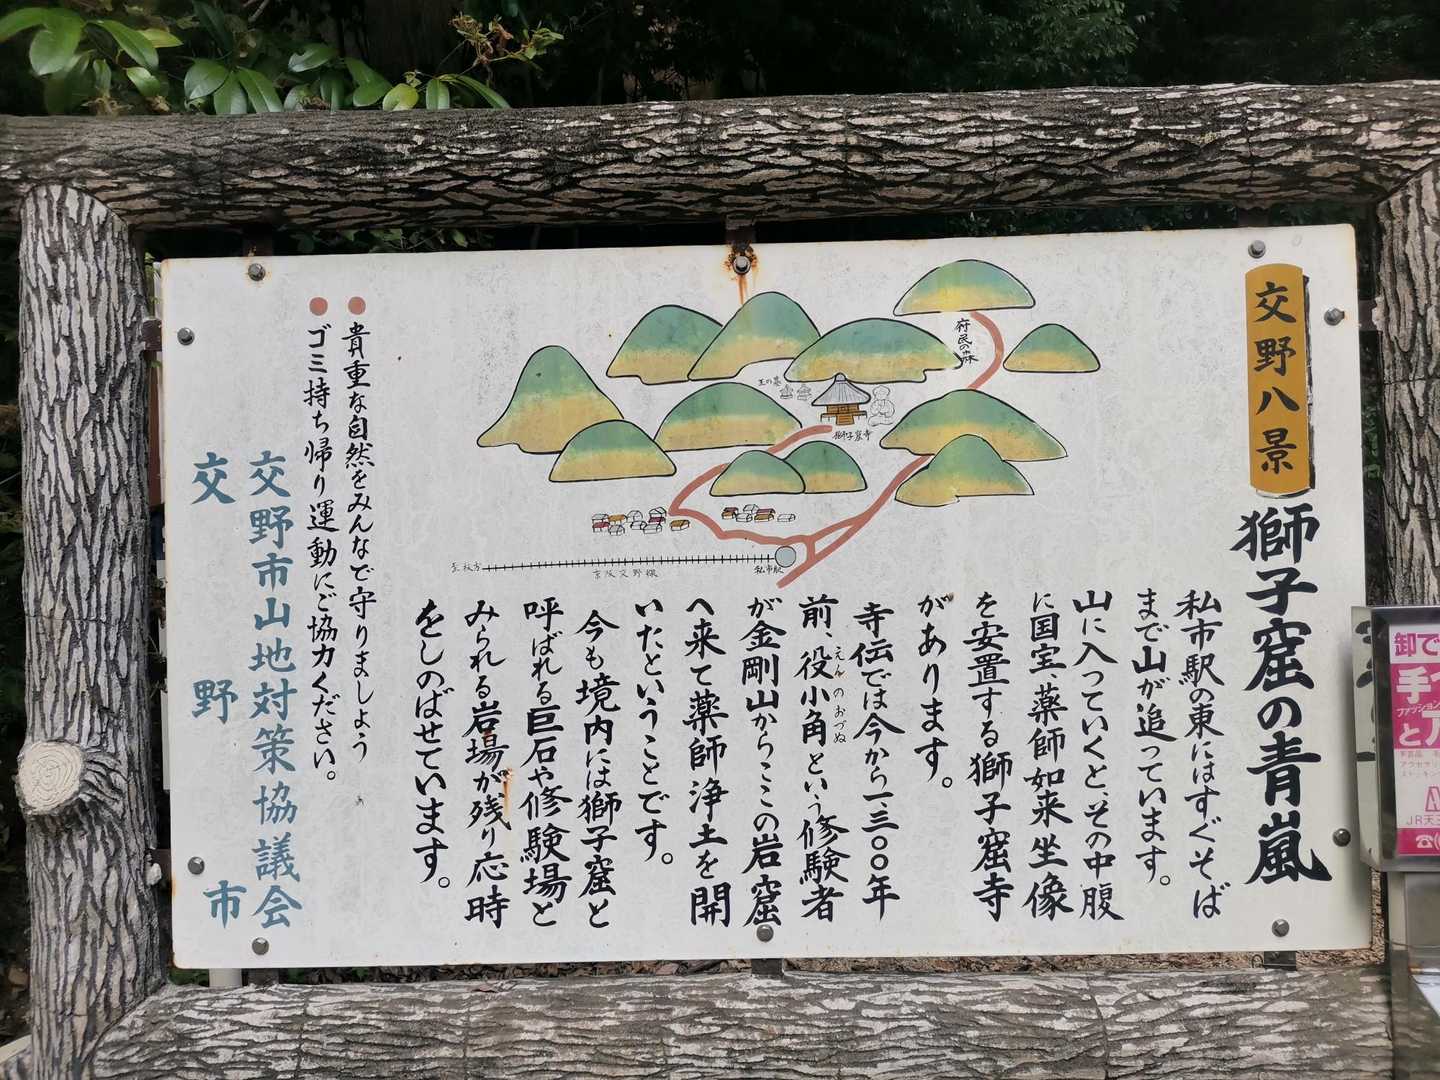 交野八景
獅子窟の青嵐
私市駅の東にはすぐそば
まで山が追っています。
山に入っていくと、その中腹
に国宝、薬師如来坐像
を安置する獅子窟寺
があります。
寺伝では今から一三〇〇年
前、役小角という修験者
えんのおづぬ
が金剛山からここの岩窟
へ来て薬師浄土を開
いたということです。
今も境内には獅子窟と
呼ばれる巨石や修験場と
みられる岩場が残り応時
をしのばせています。
府民の森
王の墓
獅子窟寺
至枚方
京阪交野線
私市駅
●貴重な自然をみんなで守りましょう
●ゴミ持ち帰り運動にご協力ください。
交野市山地対策協議会
交野市
卸で
手
ファッション
と
JR天王